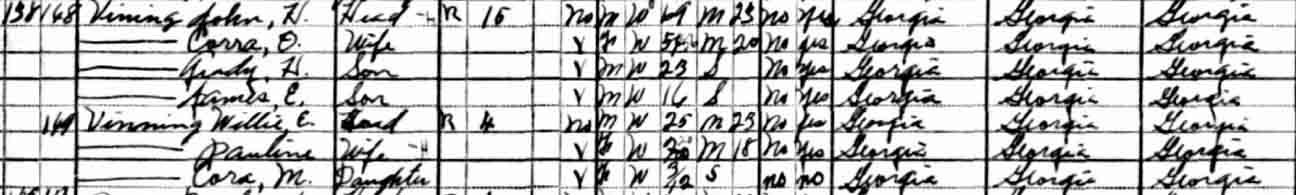 138 168 Vining John, H. Head R 15 No M W 49 M 23 No Yes Georgia Georgia Georgia
Corra, O. Wife V F W M 20 No Yes Georgia Georgia Georgia
Andy, H. Son V M W 23 S No Yes Georgia Georgia Georgia
James, E. Son V M W 16 S No Yes Georgia Georgia Georgia
169 Vinning Willie E. Head R 4 No M W 25 M 23 No Yes Georgia Georgia Georgia
Pauline Wife V F W 20 M 18 No Yes Georgia Georgia Georgia
Cora, M. Daughter V F W S no no Georgia Georgia Georgia